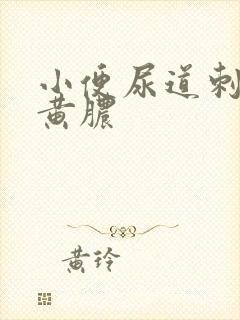 小便尿道刺
黄脓
黄玲